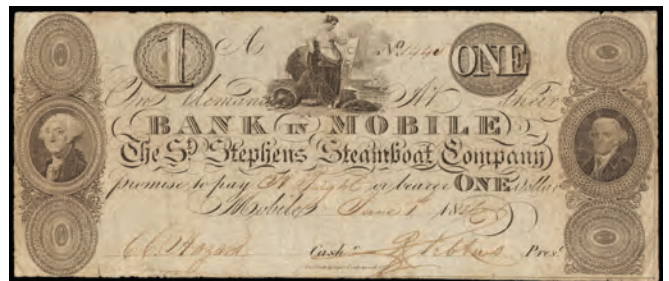 1 A No. 1440 ONE
On demand At their
BANK IN MOBILE
The St. Stephens Steamboat Company
promise to pay or bearer ONE Dollar
Mobile June 1st 18
C C Hazard Cashr. Prest.